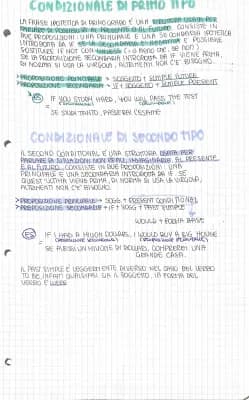 CONDIZIONALE DI PRIMO TIPO
LA FRASE IPOTETICA DI PRIMO GRADO È UNA STRUTTURA USATA PER
PARLARE DI POSSIBILITÀ AL PRESENTE O AL FUTURO. CONSISTE IN
DUE PROPOSIZIONI: UNA PRINCIPALE E UNA SECONDARIA IPOTETICA
INTRODOTTA DA IF. SE LA SECONDARIA È NEGATIVA È POSSIBILE
SOSTITUIRE IF NOT CON UNLESS (= A MENO CHE, SE NON).
SE LA PROPOSIZIONE SECONDARIA INTRODOTTA DA IF VIENE PRIMA,
DI NORMA SI USA LA VIRGOLA, ALTRIMENTI NON C'È BISOGNO.
PROPOSIZIONE PRINCIPALE = SOGGETTO + SIMPLE FUTURE
PROPOSIZIONE SECONDARIA = IF + SOGGETTO + SIMPLE PRESENT
ES IF YOU STUDY HARD, YOU WILL PASS THE TEST
SE STUDI TANTO, PASSERAI L'ESAME
CONDIZIONALE DI SECONDO TIPO
IL SECOND CONDITIONAL È UNA STRUTTURA USATA PER
PARLARE DI SITUAZIONI NON REALI, IMMAGINARIE, AL PRESENTE
E AL FUTURO. CONSISTE IN DUE PROPOSIZIONI: UNA
PRINCIPALE E UNA SECONDARIA INTRODOTTA DA IF. SE
QUEST'ULTIMA VIENE PRIMA, DI NORMA SI USA LA VIRGOLA,
ALTRIMENTI NON C'È BISOGNO.
> PROPOSIZIONE PRINCIPALE = SOGG + PRESENT CONDITIONAL
> PROPOSIZIONE SECONDARIA = IF + SOGG + PAST SIMPLE
WOULD + FORMA BASE
ES IF I HAD A MILION DOLLARS, I WOULD BUY A BIG HOUSE
(PROPOSIZIONE SECONDARIA) (PROPOSIZIONE PRINCIPALE)
SE AVESSI UN MILIONE DI DOLLARI, COMPREREI UNA
GRANDE CASA.
IL PAST SIMPLE È LEGGERMENTE DIVERSO NEL CASO DEL VERBO
TO BE, INFATTI QUALSIASI SIA IL SOGGETTO, LA FORMA DEL
VERBO È WERE